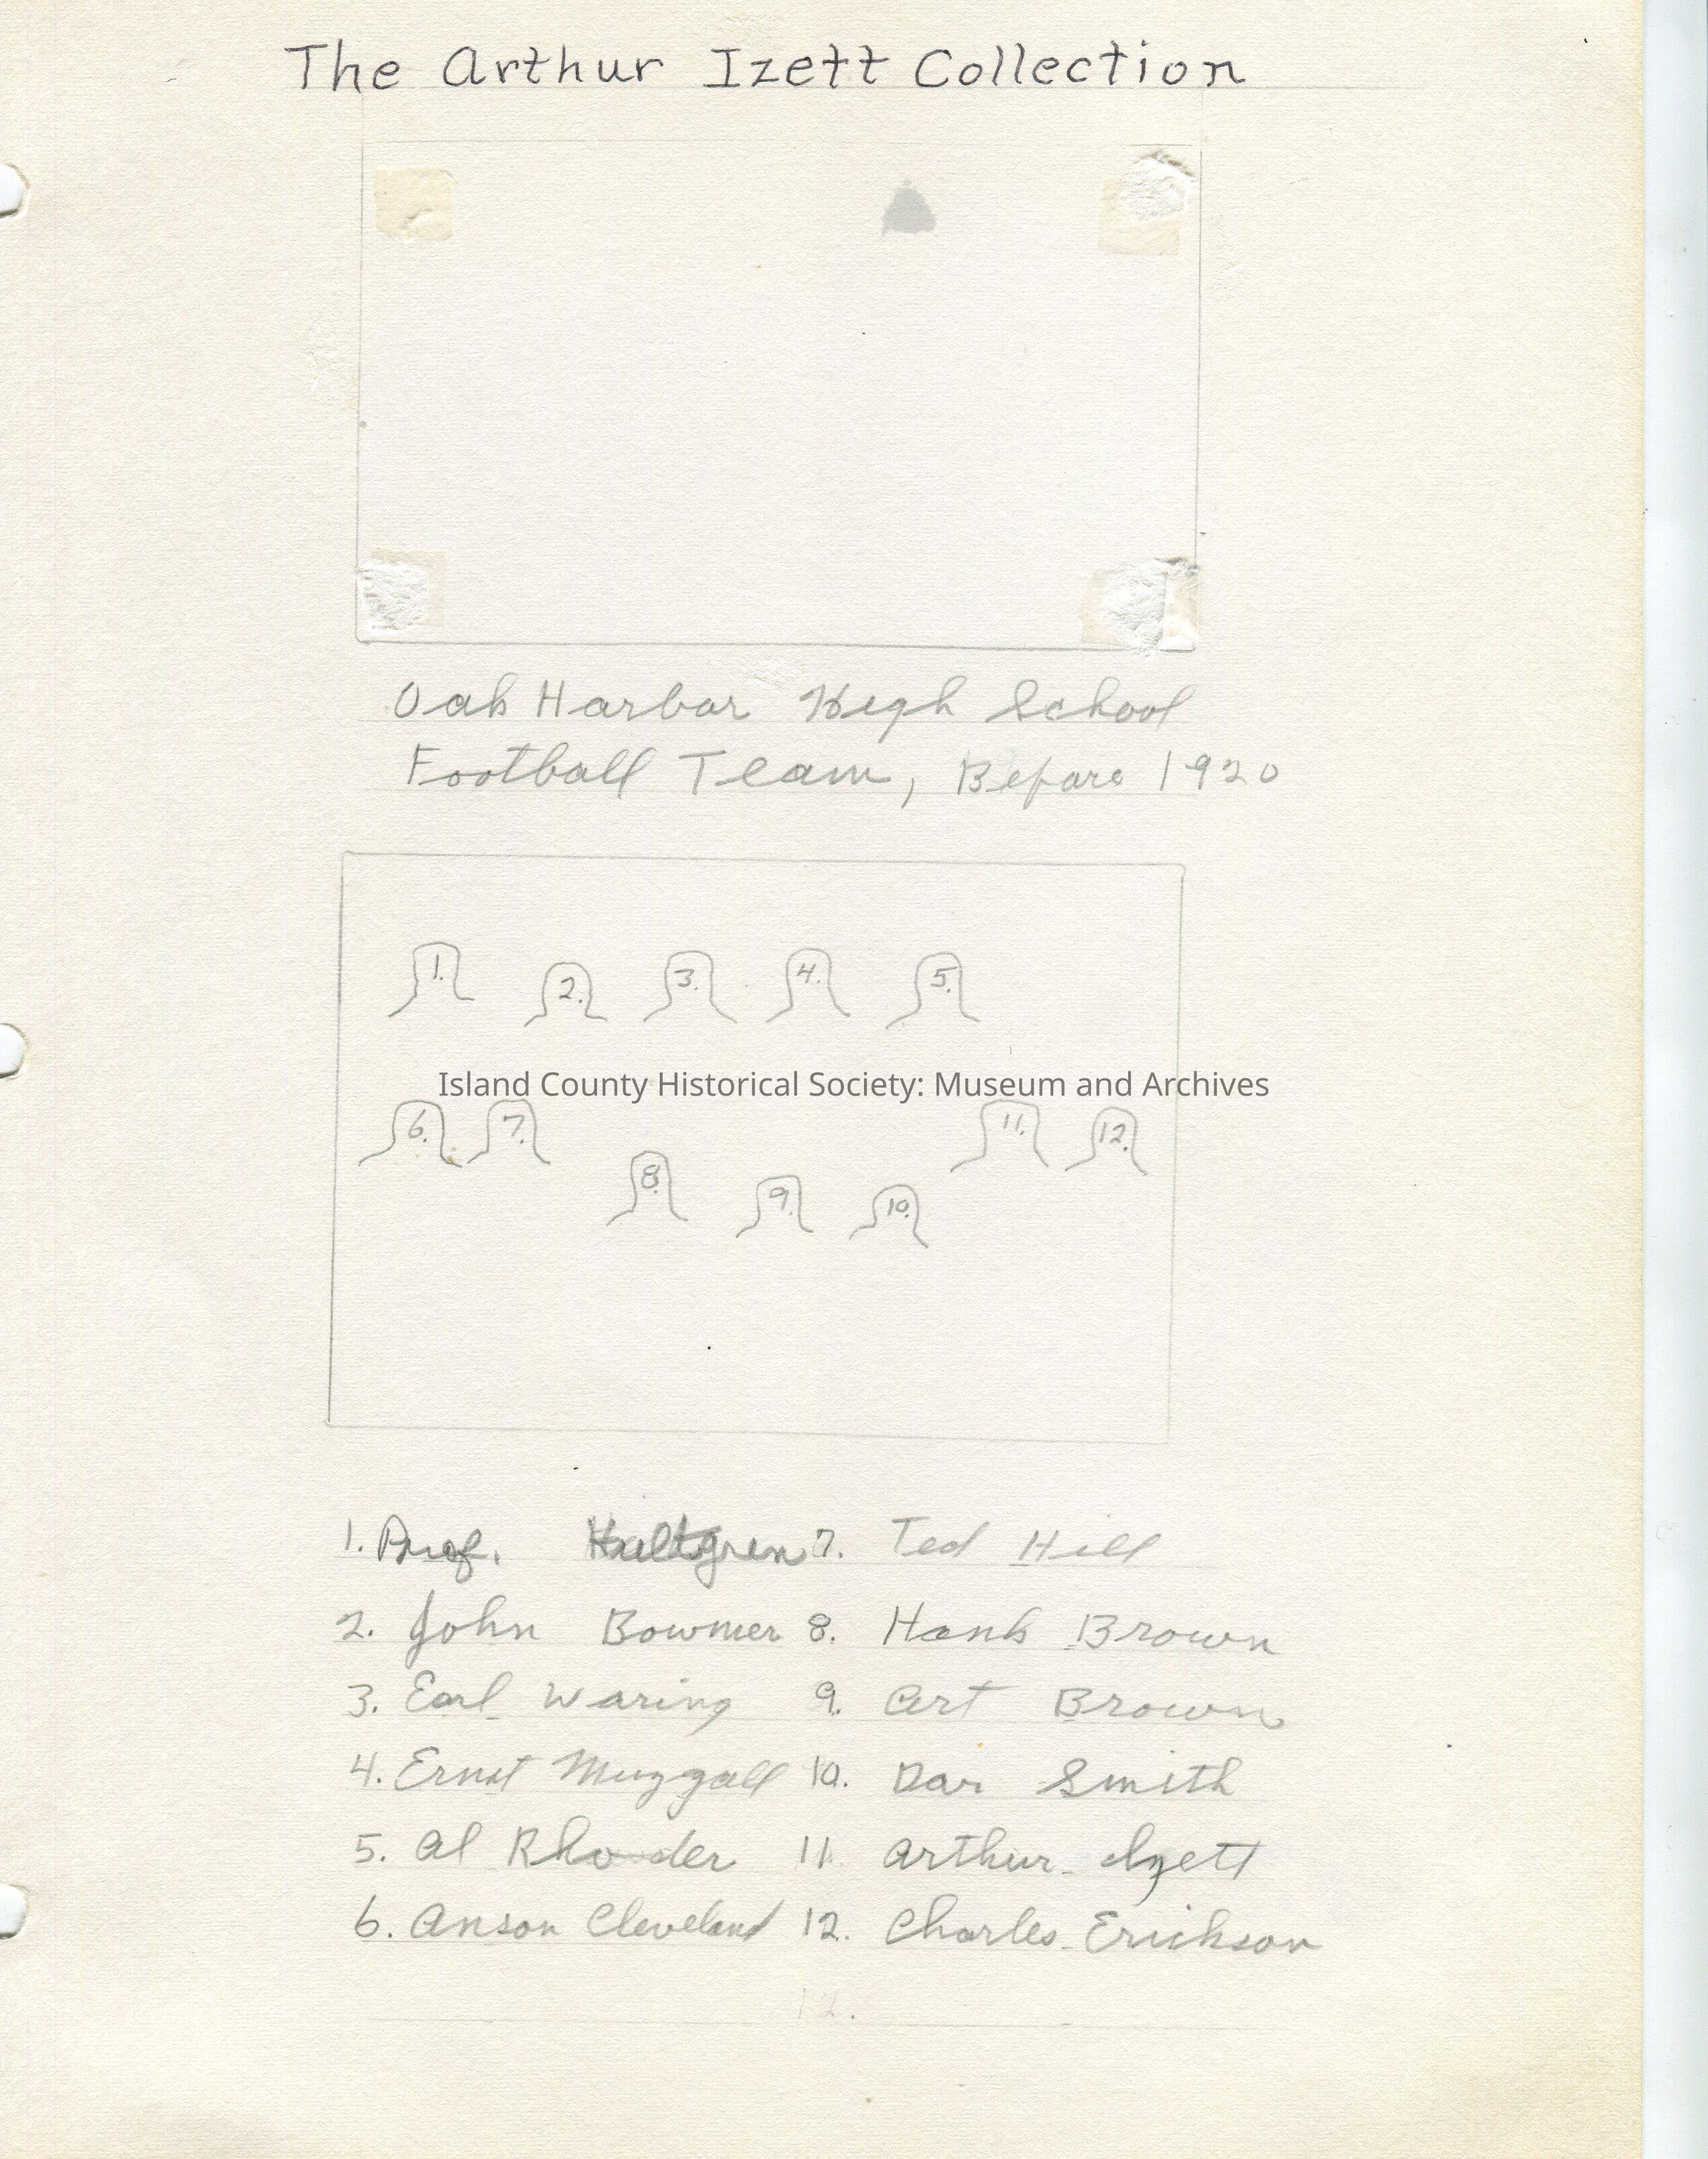 The Arthur Izett Collection
Oak Harbor High School
Football Team, Before 1920
1. 2. 3. 4. 5.
Island County Historical Society: Museum and Archives
6. 7. 11. 12.
8. 9. 10.
1. Prof. Hultgren 7. Ted Hill
2. John Bowmer 8. Hank Brown
3. Earl Waring 9. Art Brown
4. Ernst Muzzall 10. Dar Smith
5. Al Rhoder 11. Arthur Izett
6. Anson Cleveland 12. Charles Erickson
12.